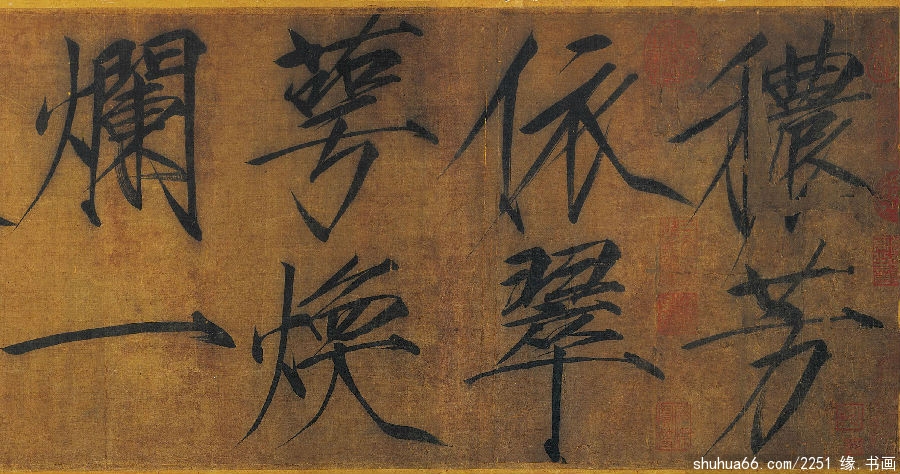 穠芳
依翠
萼煥
爛一
shuhua66.com/2251 缘.书画